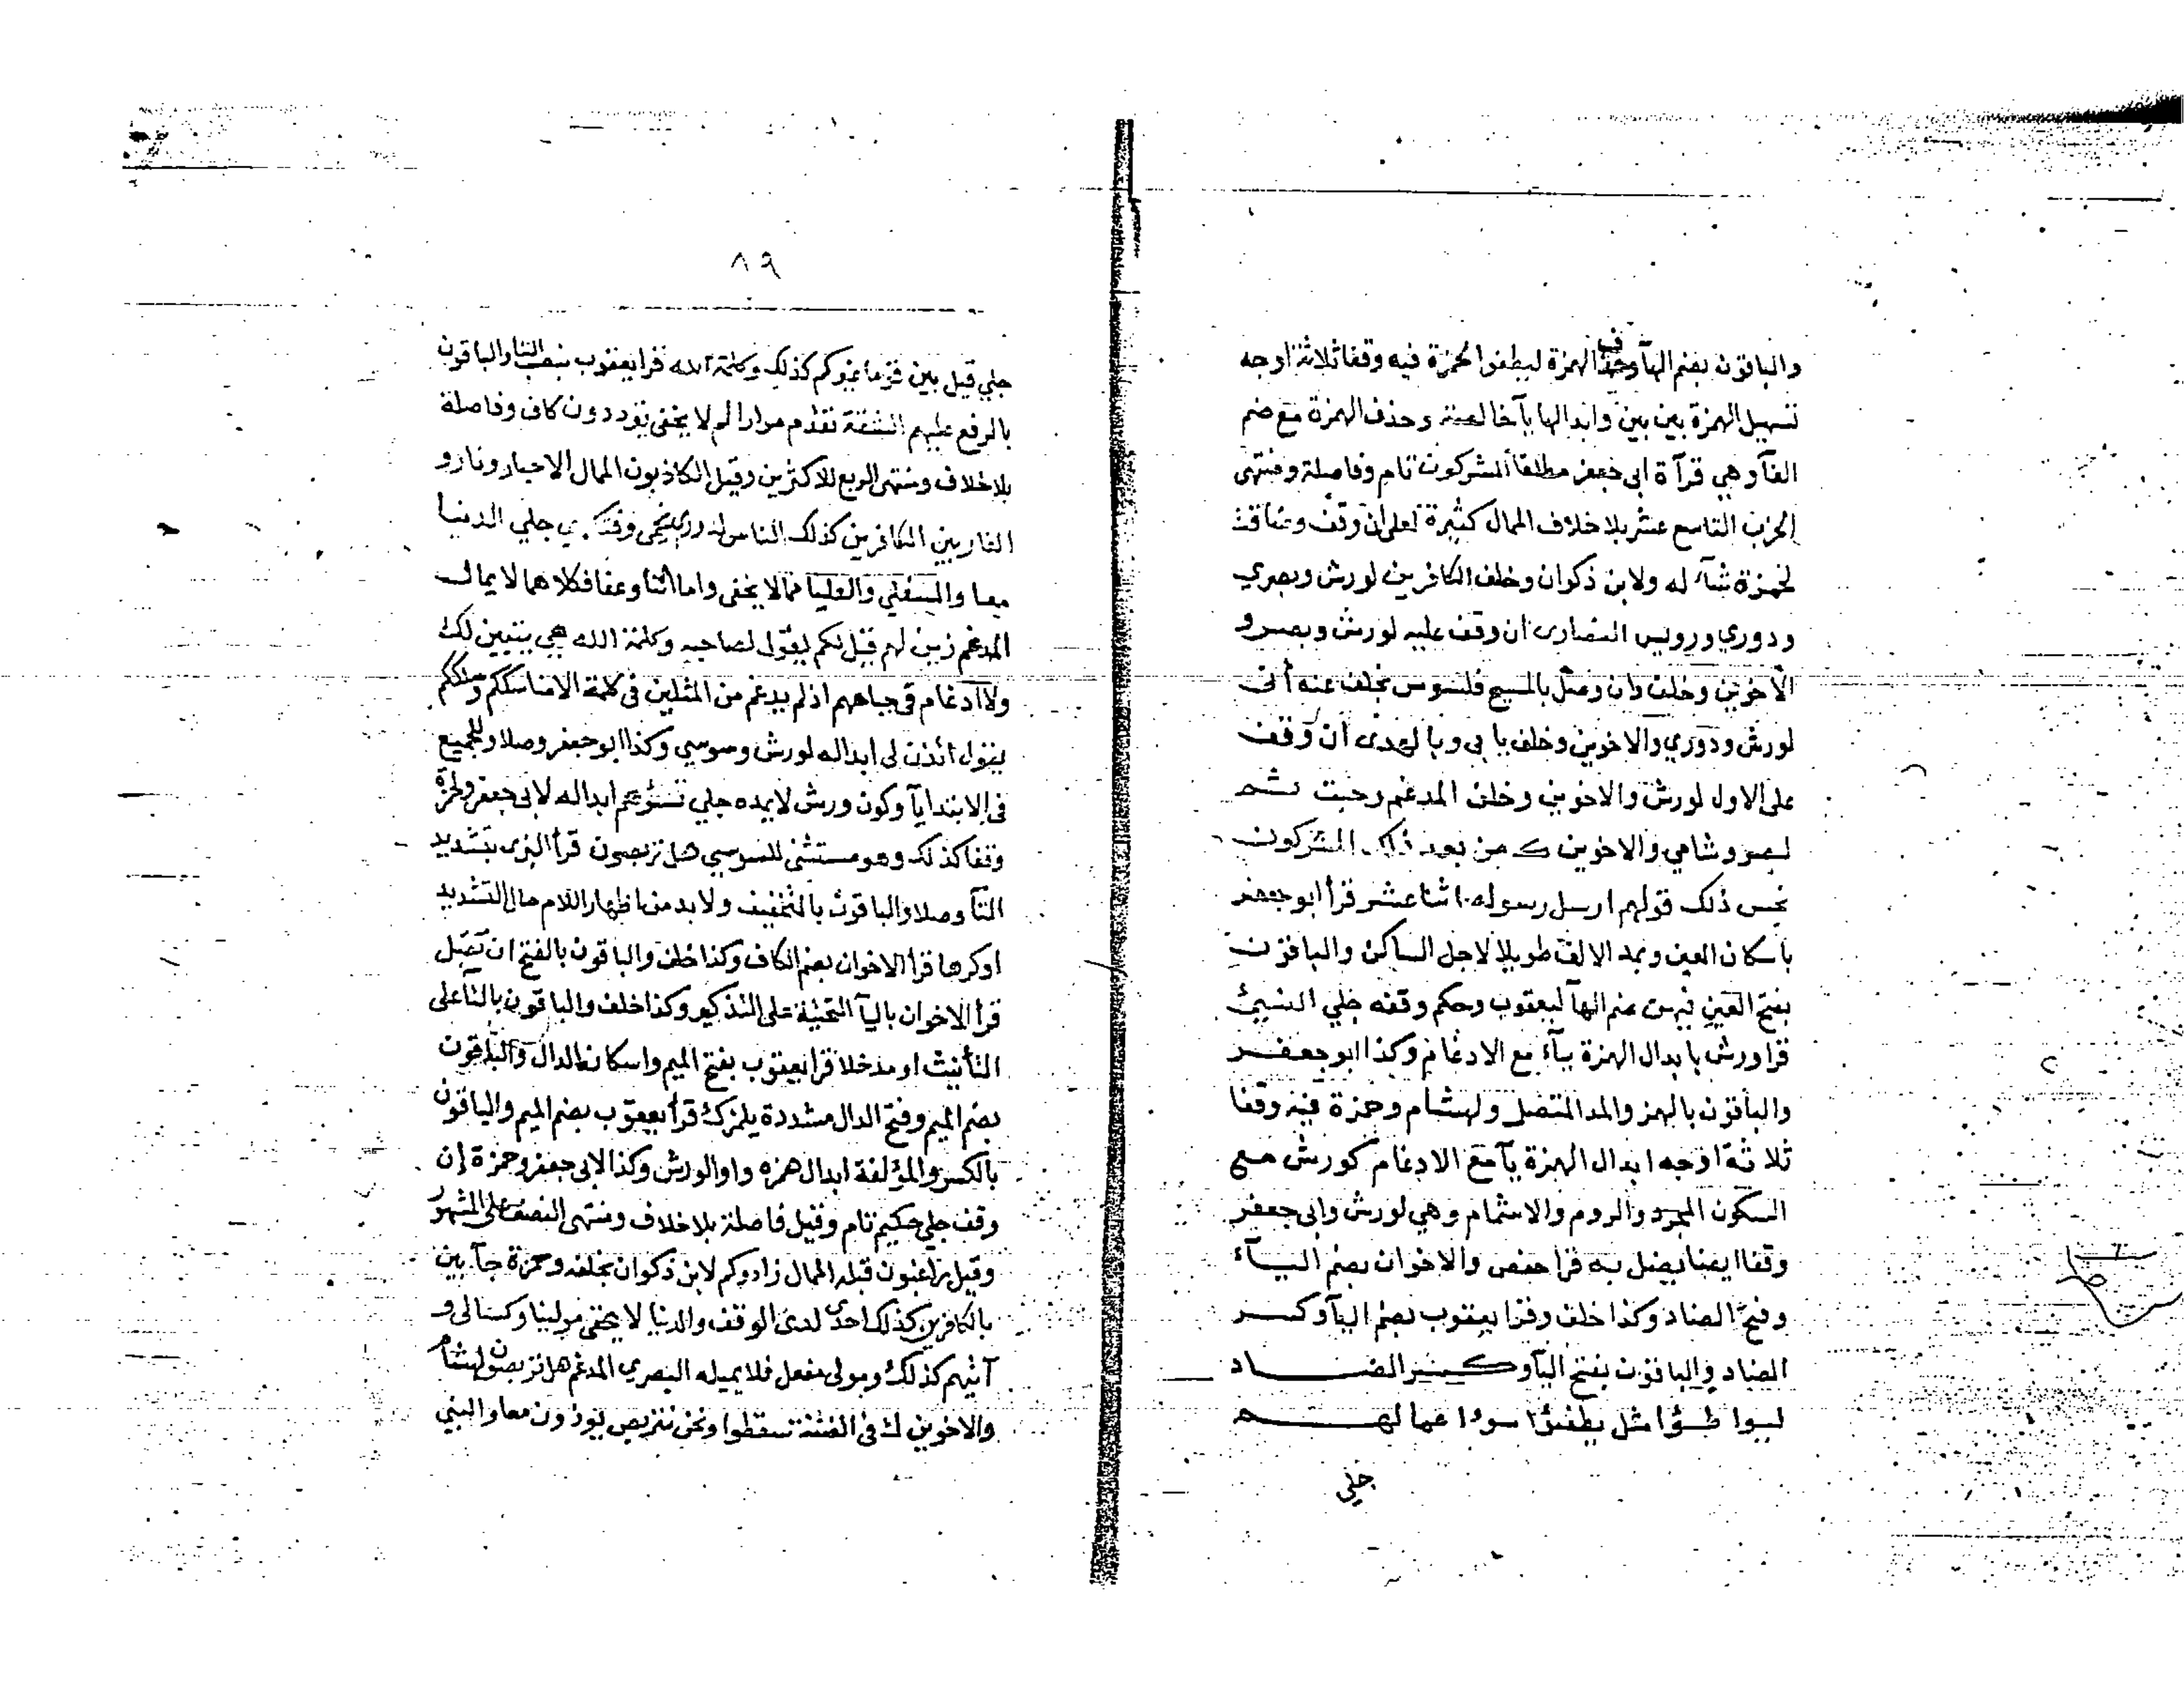 والباقون بضم الهآ وحذف الهمزة ليطفوا لحمزة فيه وقفا ثلاثة اوجه
تسهيل الهمزة بين بين وابدالها يآ خالصة وحذف الهمزة مع ضم
الفآ وهي قرآة ابى جعفر مطلقا المشركون تام وفاصلة ومنتهى
الحزب التاسع عشر بلا خلاف الممال كثيرة لعلى ان وقف وضاقت
لحمزة شآء له ولابن ذكوان وخلف الكافرين لورش وبصري
ودوري ورويس النصارى ان وقف عليه لورش وبصر و
الاخوين وخلف وان وصل بالمسيح فلسوس بخلف عنه أنى
لورش ودوري والاخوين وخلف يابى وبالهدى ان وقف
على الاول لورش والاخوين وخلف المدغم رحبت ثم
لبصر وشامي والاخوين ك من بعد ذلك المشركون
نجس ذلك قولهم ارسل رسوله اثنا عشر قرأ ابو جعفر
باسكان العين وبمد الالف طويلا لاجل الساكن والباقون
بفتح العين فيهن ضم الهآ ليعقوب وحكم وقفه جلي النسيئ
قرا ورش بابدال الهمزة يآء مع الادغام وكذا ابو جعفر
والباقون بالهمز والمد المتصل ولهشام وحمزة فيه وقفا
ثلاثة اوجه ابدال الهمزة يآ مع الادغام كورش مع
السكون المجرد والروم والاشمام وهي لورش وابى جعفر
وقفا ايضا يضل به قرا حفص والاخوان بضم اليآء
وفتح الضاد وكذا خلف وقرا يعقوب بضم اليآ وكسر
الضاد والباقون بفتح اليآ وكسر الضاد
ليوا طؤا مثل يطفؤا سوءا عمالهم
جلي
٨٩
جلي قيل بين غيركم كذلك وكلمة الله قرا يعقوب بنصب التا والباقون
بالرفع عليهم الشقة تقدم مرارا لم لا يخفى يترددون كاف وفاصلة
بلا خلاف ومنتهى الربع للاكثرين وقيل لكاذبون الممال الاحبار ونار و
الغار بين الكافرين كذلك الناس لدوري جلي الدنيا
معا والسفلي والعليا مما لا يخفى واما اثنا وعفا فكلاهما لا يمال
المدغم زين لهم قيل لكم ليقول لصاحبه وكلمة الله هي يتبين لك
ولا ادغام فى جباههم اذ لم يدغم من المثلين فى كلمة الا مناسككم وسلككم
يقول أئذن لى ابداله لورش وسوسي وكذا ابو جعفر وصلا وللجميع
فى الابتدا يآ وكون ورش لا يمده جلي تسؤهم ابداله لابى جعفر ولحمزة
وقفا كذلك وهو مستثنى للسوسي هل تربصون قرأ البزى بتشديد
التآ وصلا والباقون بالتخفيف ولا بد من اظهار اللام حال التشديد
اوكرها قرأ الاخوان بضم الكاف وكذا خلف والباقون بالفتح ان تقبل
قرأ الاخوان باليآ التحتية على التذكير وكذا خلف والباقون بالتا على
التأنيث او مدخلا قرا يعقوب بفتح الميم واسكان الدال والباقون
بضم الميم وفتح الدال مشددة يلمزك قرأ يعقوب بضم الميم والباقون
بالكسر والمؤلفة ابدال همزه واوا لورش وكذا لابى جعفر وحمزة إن
وقف جلي حكيم تام وقيل فاصلة بلا خلاف ومنتهى النصف على المشهور
وقيل راغبون قبله الممال زادوكم لابن ذكوان بخلفه وحمزة جآ بين
بالكافرين كذلك احدى لدى الوقف والدنيا لا يخفى مولينا وكسالى و
آتيهم كذلك ومولى مفعل فلا يميله البصري المدغم هل تربصون لهشام
والاخوين ك فى الفتنة سقطوا ونحن نتربص يوذون معا والبني